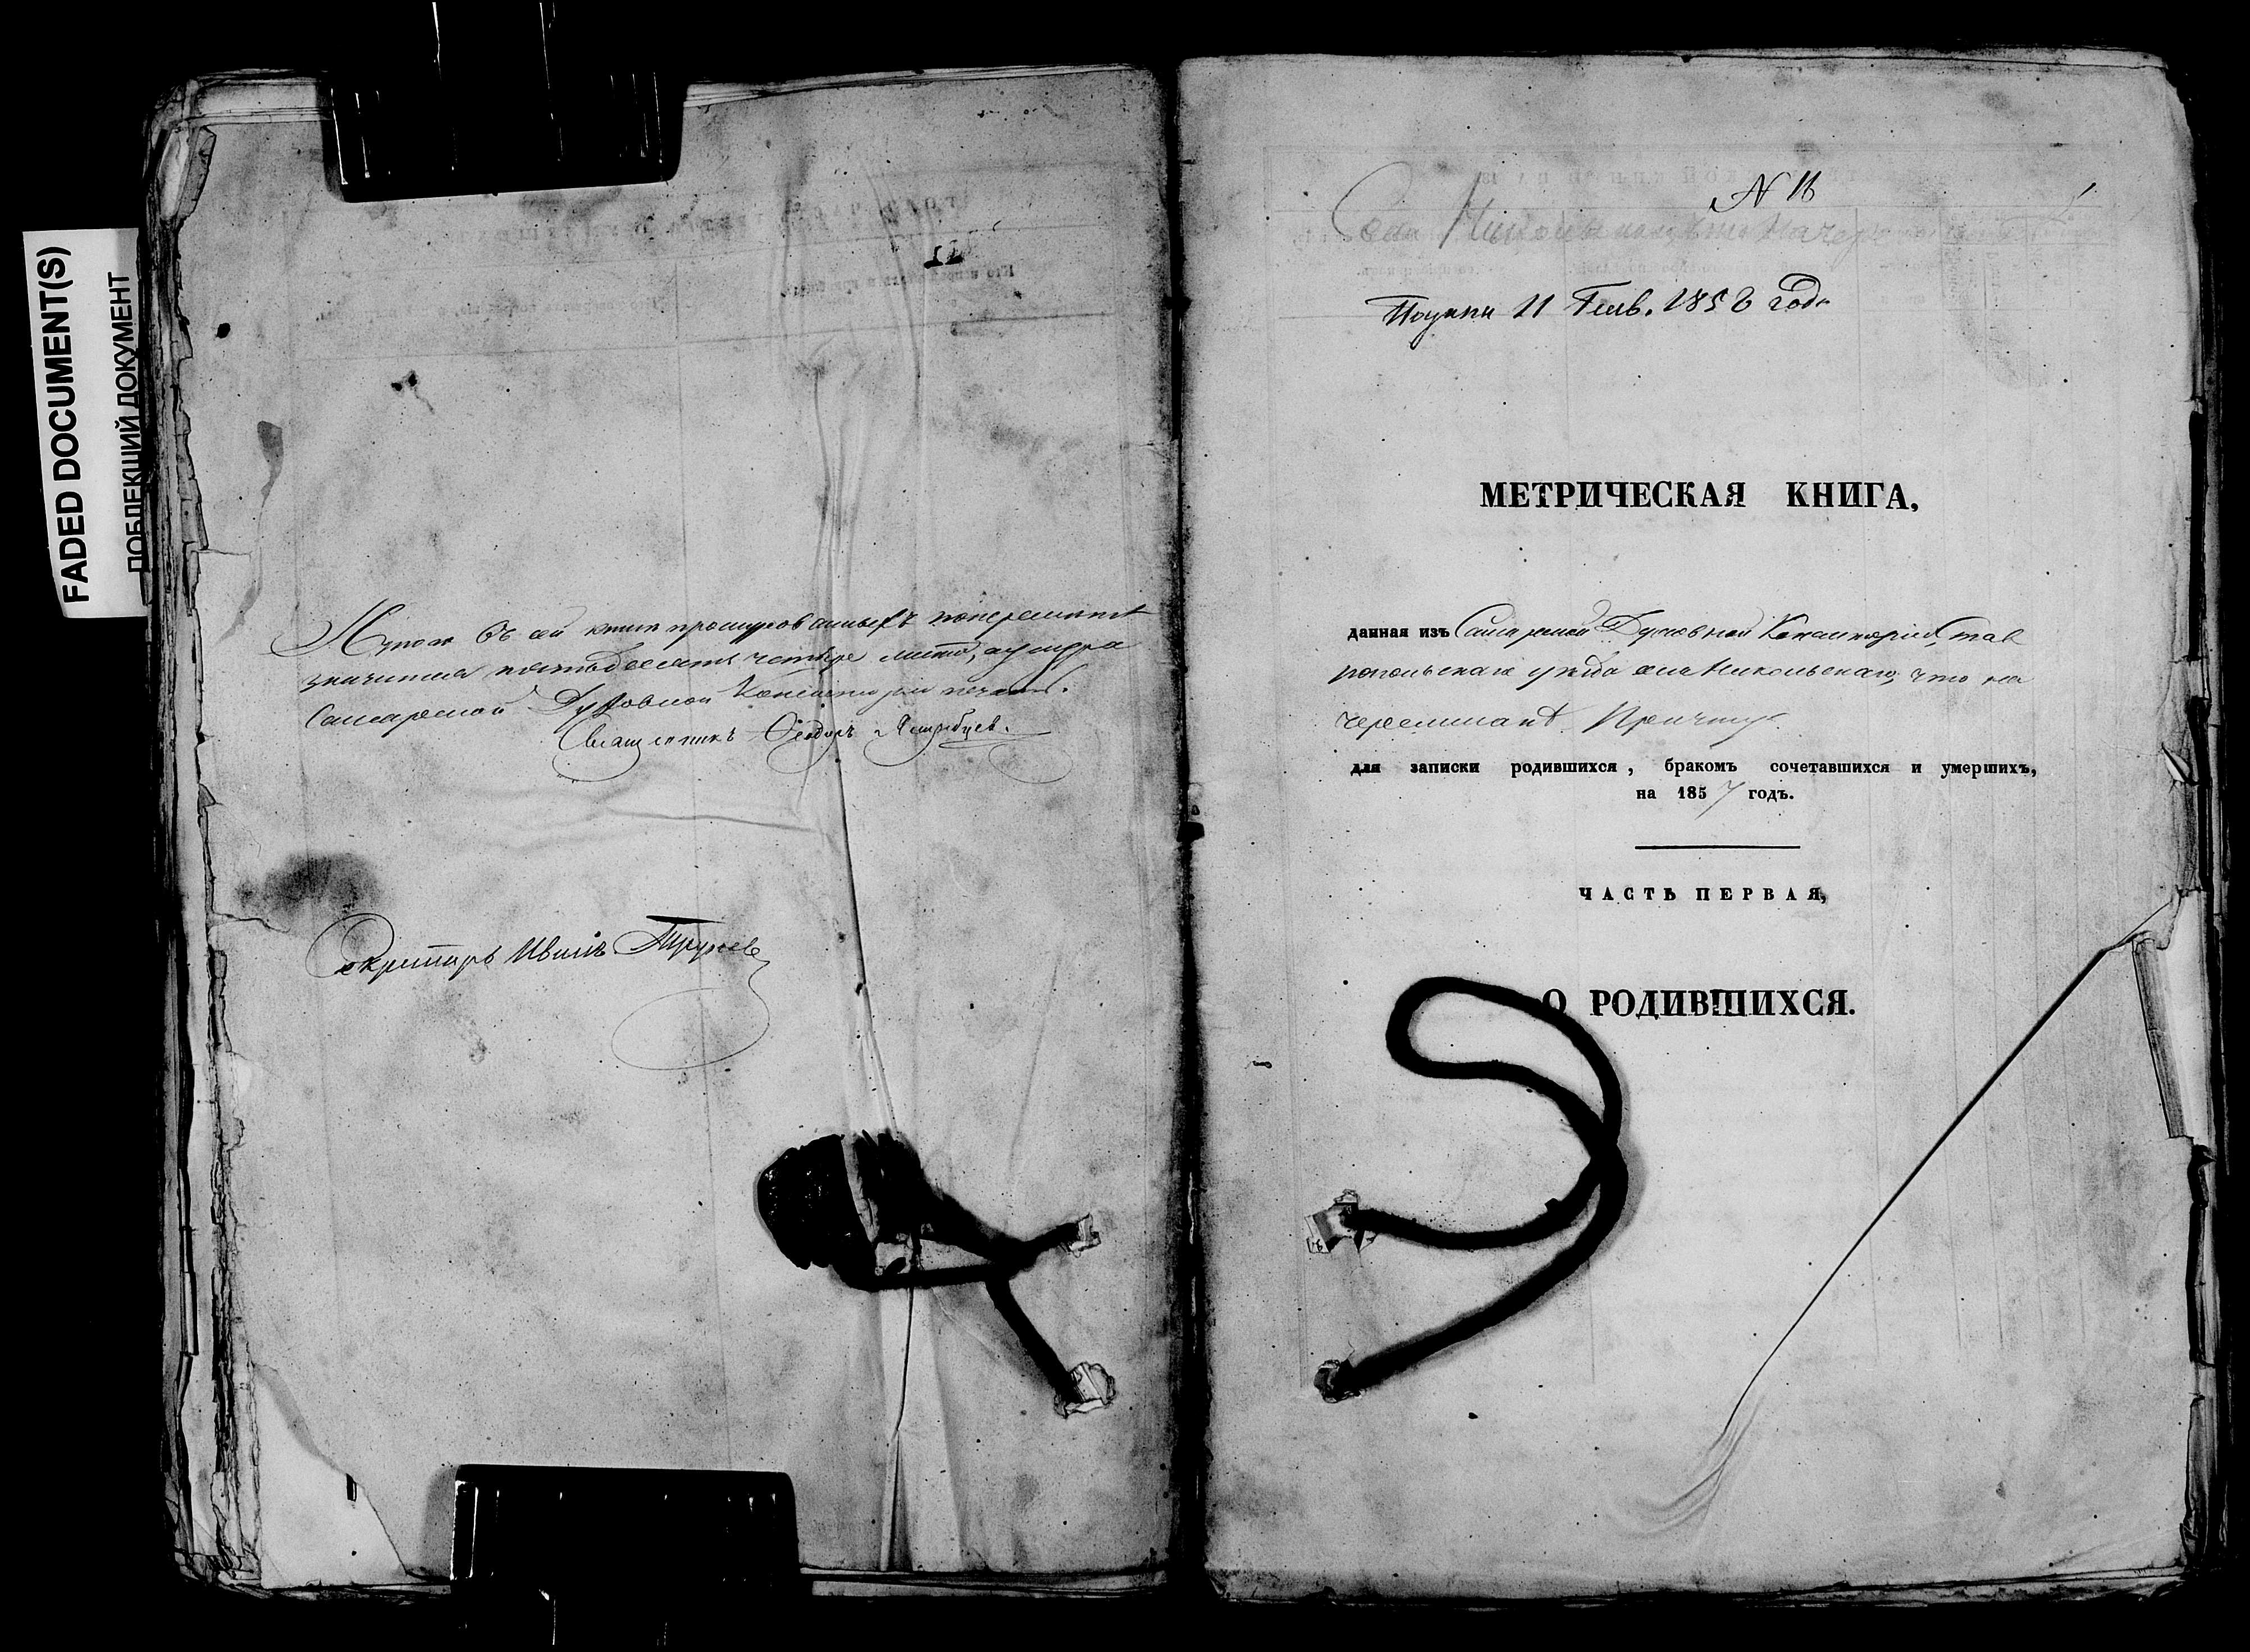 FADED DOCUMENT(S)
ПОБЛЕКШИЙ ДОКУМЕНТ
12
въ сей книге прошурованныхъ
значится пятьдесятъ четыре листа,
Самарской Духовной Консисторіи печати.
Священникъ Ѳеодоръ Ястребцев.
Секретарь Иванъ
N 16
Села
11 Генв. 1858 года
МЕТРИЧЕСКАЯ КНИГА,
данная изъ Самарской Духовной Консисторіи, Став
ропольскаго уезда села Никольскаго, что на
Черемшане Причту
для записки родившихся, бракомъ сочетавшихся и умершихъ,
на 1857 годъ.
ЧАСТЬ ПЕРВАЯ,
О РОДИВШИХСЯ.